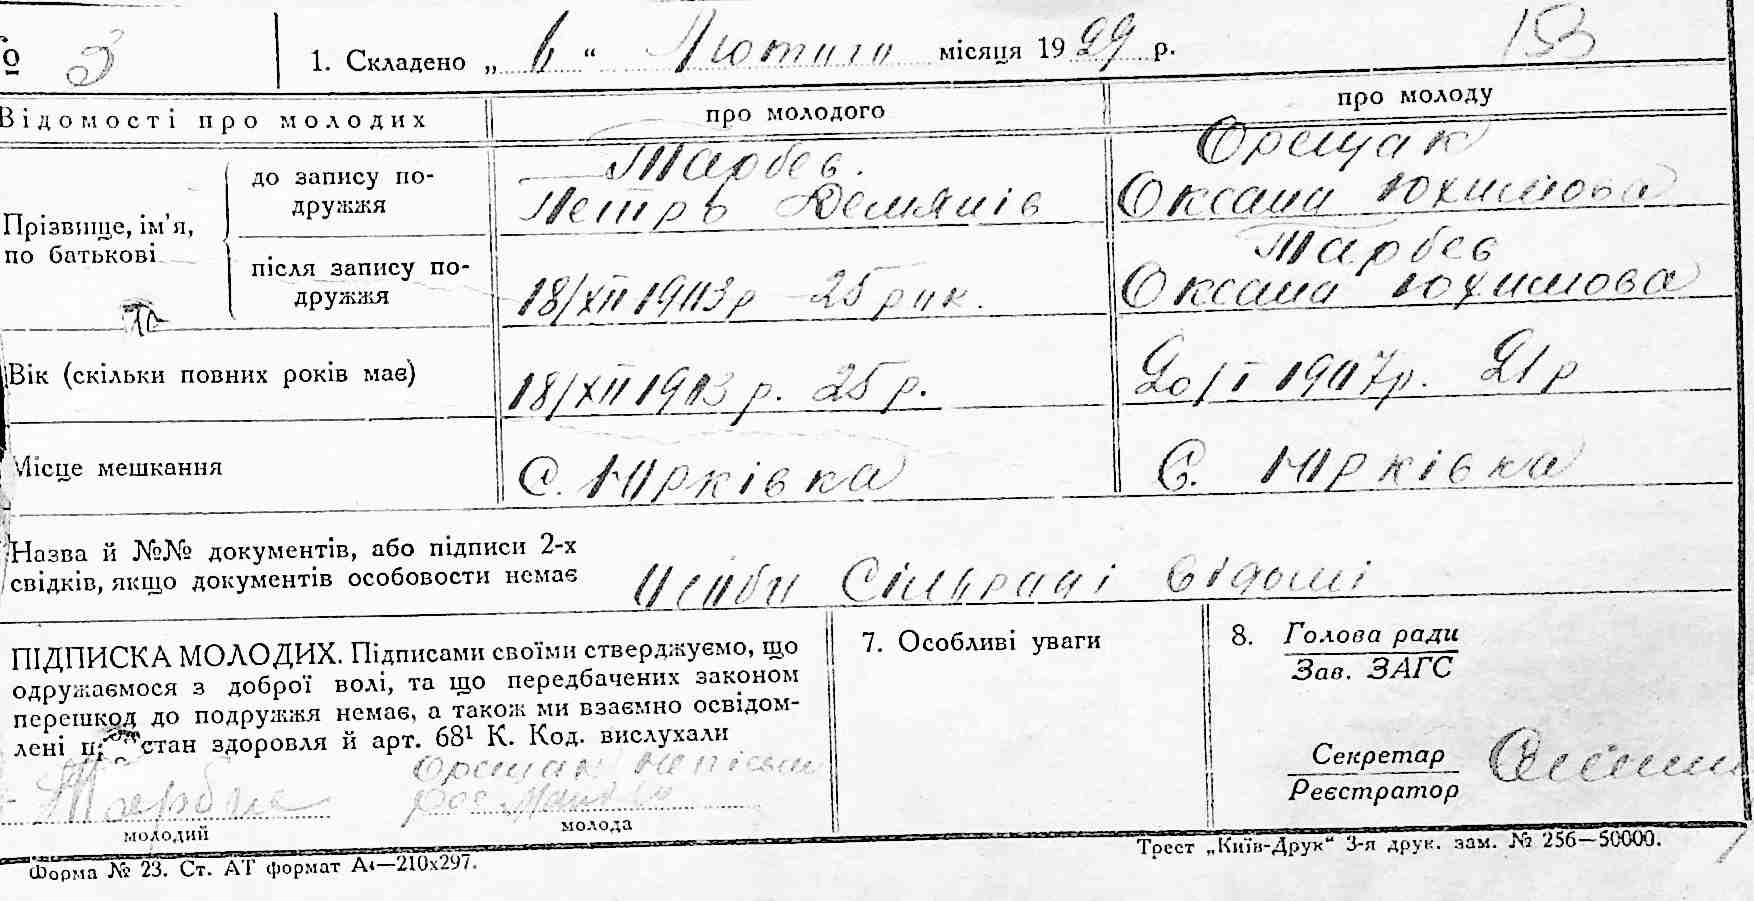 № 3 1. Складено „ 6 “ Лютого місяця 1929 р. 153
Відомості про молодих про молодого про молоду
Прізвище, ім’я, по батькові
до запису подружжя
Тарбєв. Петро Демянів
Орещак Оксана Юхимова
після запису подружжя
18/XII 1903 р 25 рик.
Тарбєв Оксана Юхимова
Вік (скільки повних років має) 18/XII 1903 р. 25 р. 20/I 1907 р. 21 р
Місце мешкання С. Юрківка С. Юрківка
Назва й №№ документів, або підписи 2-х
свідків, якщо документів особовости немає
Сільраді відомі
ПІДПИСКА МОЛОДИХ. Підписами своїми стверджуємо, що
одружаємося з доброї волі, та що передбачених законом
перешкод до подружжя немає, а також ми взаємно освідом-
лені п стан здоровля й арт. 68¹ К. Код. вислухали
Орещак
молодий молода
7. Особливі уваги
8. Голова ради
Зав. ЗАГС
Секретар
Реєстратор
Форма № 23. Ст. АТ формат А4—210х297.
Трест „Київ-Друк“ 3-я друк. зам. № 256—50000.